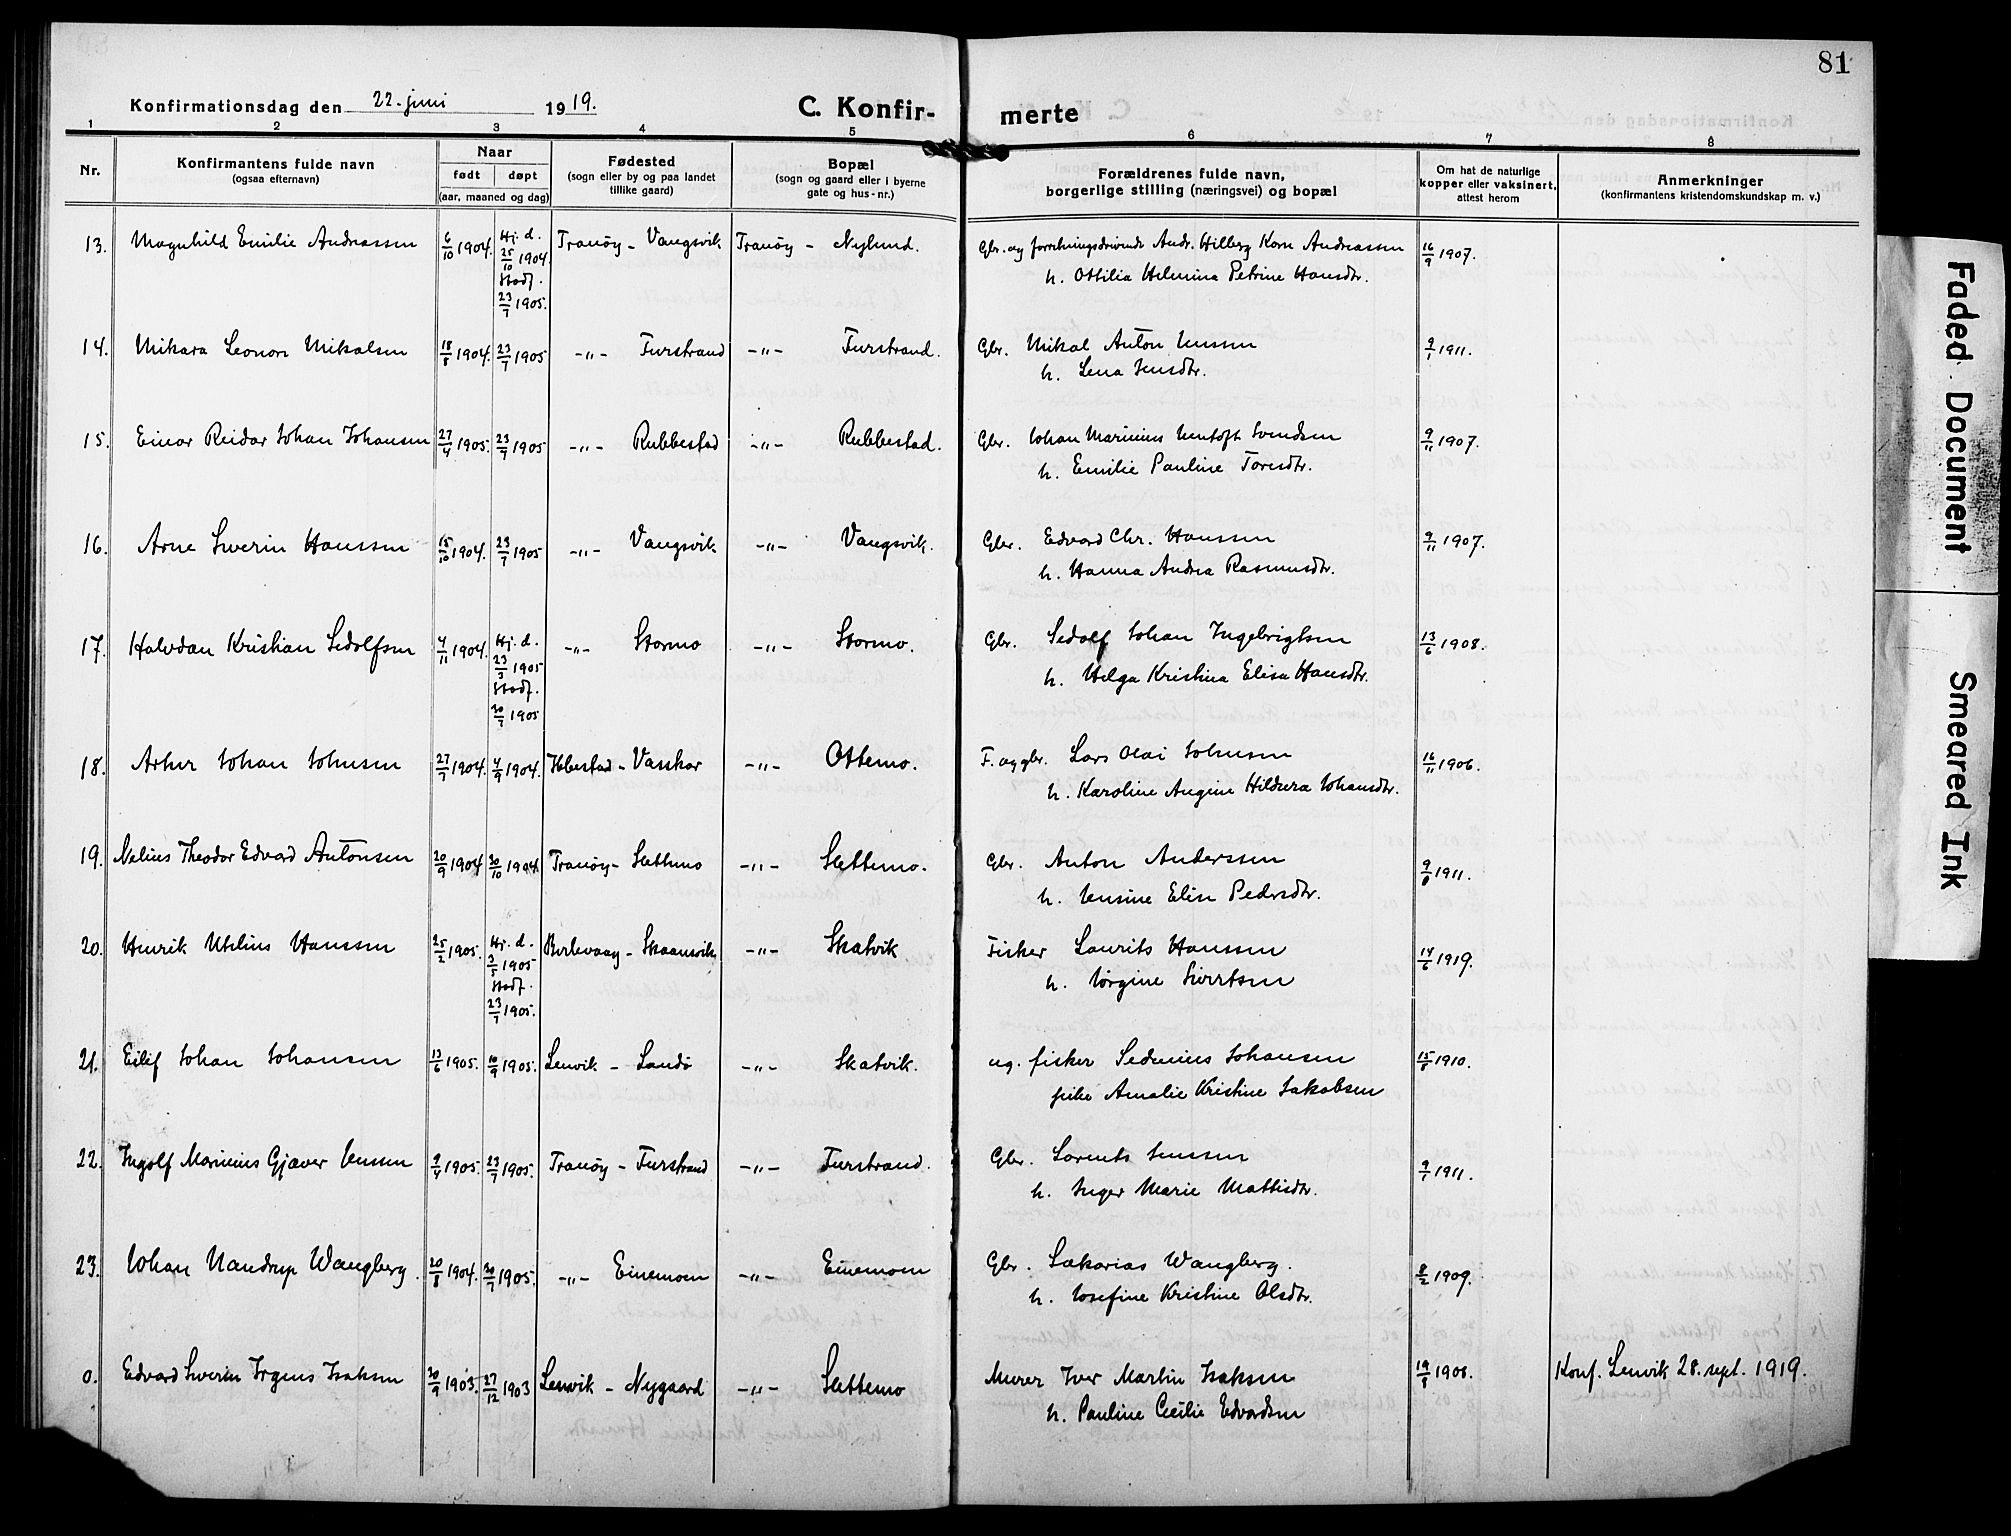 81
Konfirmationsdag den 22. juni 1919.
C. Konfirmerte
1 2 3 4 5 6 7 8
Nr.
Konfirmantens fulde navn
(ogsaa efternavn)
Naar
født døpt
(aar, maaned og dag)
Fødested
(sogn eller by og paa landet
tillike gaard)
Bopæl
(sogn og gaard eller i byerne
gate og hus-nr.)
Forældrenes fulde navn,
borgerlige stilling (næringsvei) og bopæl
Om hat de naturlige
kopper eller vaksinert,
attest herom
Anmerkninger
(konfirmantens kristendomskundskap m. v.)
13. Magnhild Emilie Andreassen 6/10 1904. Hj. d. 25/10 1904. Stadf. 23/7 1905. Tranöy - Vangsvik Tranöy - Nylund. Gbr. og forretningsdrivende Andr. Hilberg Korn Andreassen 16/9 1907.
h. Ottilia Helmina Petrine Hansdtr.
14. Mikara Leonore Mikalsen 18/8 1904. 23/7 1905 -"- Furstrand -"- Furstrand. Gbr. Mikal Anton Jenssen 9/1 1911.
h. Lena Jensdtr.
15. Einar Reidar Johan Johansen 27/4 1905. 23/7 1905 -"- Rubbestad -"- Rubbestad. Gbr. Johan Marinius Jentoft Svendsen 9/11 1907.
h. Emilie Pauline Toresdtr.
16. Arne Severin Hanssen 15/10 1904. 23/7 1905 -"- Vangsvik -"- Vangsvik. Gbr. Edvard Chr. Hanssen 9/11 1907.
h. Hanna Andrea Rasmusdtr.
17. Halvdan Kristian Sedolfsen 4/11 1904. Hj. d. 23/3 1905 Stadf. 30/7 1905 -"- Stormo -"- Stormo. Gbr. Sedolf Johan Ingebrigtsen 13/6 1908.
h. Helga Kristina Elisa Hansdtr.
18. Artur Johan Johnsen 27/7 1904. 4/9 1904. Ibbestad - Vasskar -"- Ottemo. F. og gbr. Lars Olai Johnsen 16/11 1906.
h. Karoline Angine Hildura Johansdtr.
19. Nelius Theodor Edvard Antonsen 20/9 1904 30/10 1904. Tranöy - Slettemo -"- Slettemo. Gbr. Anton Anderssen 9/8 1911.
h. Jensine Elise Pedersdtr.
20. Henrik Utelius Hanssen 25/2 1905. Hj. d. 3/5 1905 Stadf. 23/7 1905. Berlevaag - Skaansvik -"- Skatvik Fisker Laurits Hanssen 14/6 1919.
h. Jörgine Sivertsen
21. Eilif Johan Johansen 13/6 1905. 10/9 1905. Lenvik - Sandö -"- Skatvik. ug. fisker Sedenius Johansen 15/8 1910.
pike Amalie Kristine Jakobsen
22. Ingolf Marinius Gjæver Jenssen 9/4 1905. 23/7 1905. Tranöy - Furstrand -"- Furstrand. Gbr. Lorents Jenssen 9/1 1911.
h. Inger Marie Mattisdtr.
23. Johan Nandrup Wangberg. 20/8 1904. 30/7 1905. -"- Einemoen -"- Einemoen Gbr. Sakarias Wangberg. 8/2 1909.
h. Josefine Kristine Olsdtr.
0. Edvard Severin Irgens Isaksen 30/9 1903. 27/12 1903 Lenvik - Nygaard -"- Slettemo Murer Iver Martin Isaksen 19/8 1908. Konf. Lenvik 28. sept. 1919.
h. Pauline Cecilie Edvardsen
Faded Document
Smeared Ink